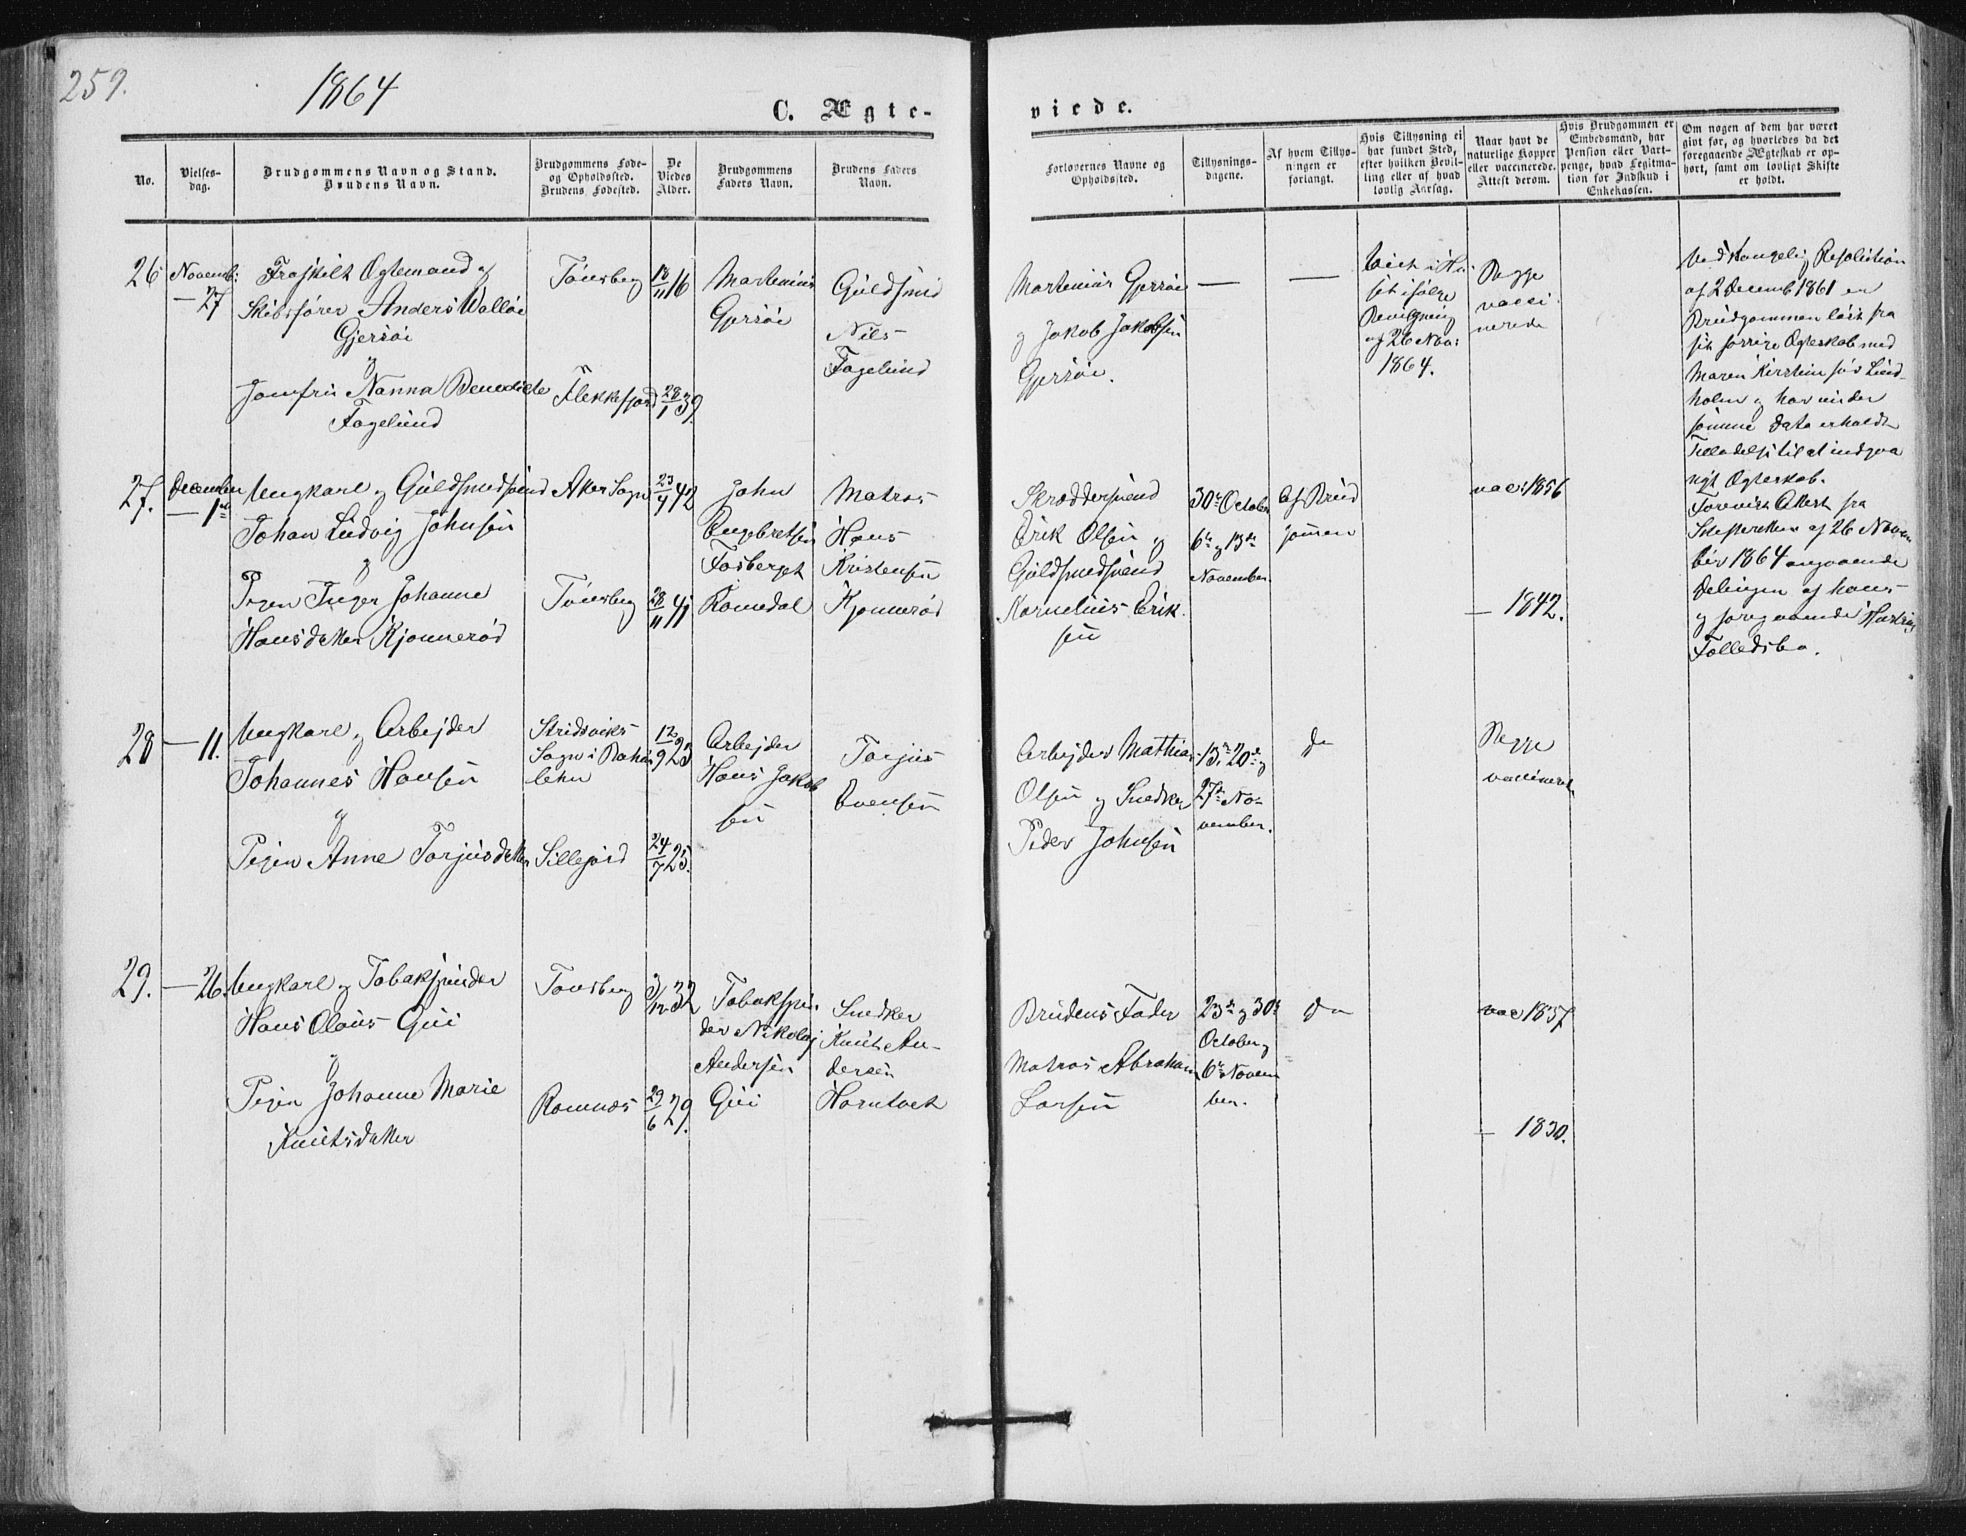 259.
1864
C. Ægte-
viede.
No.
Vielses-
dag.
Brudgommens Navn og Stand.
Brudens Navn.
Brudgommens Føde-
og Opholdssted.
Brudens Fødested.
De
Viedes
Alder.
Brudgommens
Faders Navn.
Brudens Faders
Navn.
Forlovernes Navne og
Opholdssted.
Tillysnings-
dagene.
Af hvem Tillys-
ningen er
forlangt.
Hvis Tillysning ei
har fundet Sted,
efter hvilken Bevil-
ling eller af hvad
lovlig Aarsag.
Naar havt de
naturlige Kopper
eller vaccinerede.
Attest derom.
Hvis Brudgommen er
Embedsmand, har
Pension eller Vart-
penge, hvad Legitima-
tion for Indskud i
Enkekassen.
Om nogen af dem har været
gift før, og hvorledes da det
foregaaende Ægteskab er op-
hørt, samt om lovligt Skifte
er holdt.
26
Novemb:
— 27
Fraskilt Ægtemand og
Skibsfører Anders Walløe
Gjersøi
og
Jomfru Nanna Benedicte
Fagelund
Tønsberg
Flekkefjord
18/11 16
28/1 39.
Marthinius
Gjersøi
Guldsmed
Nils
Fagelund
Marthinius Gjersøi
og Jakob Jakobsen
Gjersøi.
—
—
Viet i Hu-
set ifølge
Bevilgning
af 26 Nov:
1864.
Begge
vacci
nerede
Ved Kongelig Resolution
af 2 Decemb 1861 er
Brudgommen løst fra
sit forrige Ægteskab med
Maren Kirstine fød Lind-
holm og har under
samme Dato erholdt
Tilladelse til at indgaa
nyt Ægteskab.
Forevist Attest fra
Skifteretten af 26 Novem
ber 1864 angaaende
Delingen af hans
og foregaaende Hustrus
Fælledsbo.
27.
December
— 1ste
Ungkarl og Guldsmedsvend
Johan Ludvig Johnsen
og
Pigen Inger Johanne
Hansdatter Kjønnerød
Aker Sogn
Tønsberg
23/4 42
28/11 41
John
Engebretsen
Fosberget
Romedal
Matros
Hans
Kristensen
Kjønnerød
Skræddersvend
Erik Olsen og
Guldsmedsvend
Kornelius Erik-
sen
30te October
6te og 13de
November.
Af Brud
gommen
vac: 1856
— 1842.
28
— 11.
Ungkarl og Arbejder
Johannes Hansen
og
Pigen Anne Torjusdatter
Stridsviks
Sogn i Bahus
lehn
Sillejord
12/9 23
24/7 25.
Arbejder
Hans Jakob
sen
Torjus
Evensen
Arbejder Mathias
Olsen og Snedker
Peder Johnsen
13de, 20de og
27de No-
vember.
do
Begge
vaccineret
29.
— 26.
Ungkarl og Tobakspinder
Hans Olaus Gui
og
Pigen Johanne Marie
Knutsdatter
Tønsberg
Ramnæs
3/12 32
29/6 29.
Tobakspin-
der Nikolaj
Andersen
Gui
Snedker
Knut An-
dersen
Horntvet
Brudens Fader
Matros Abraham
Larsen
23de og 30te
October og
6te Novem
ber.
do
vac 1857
— 1830.